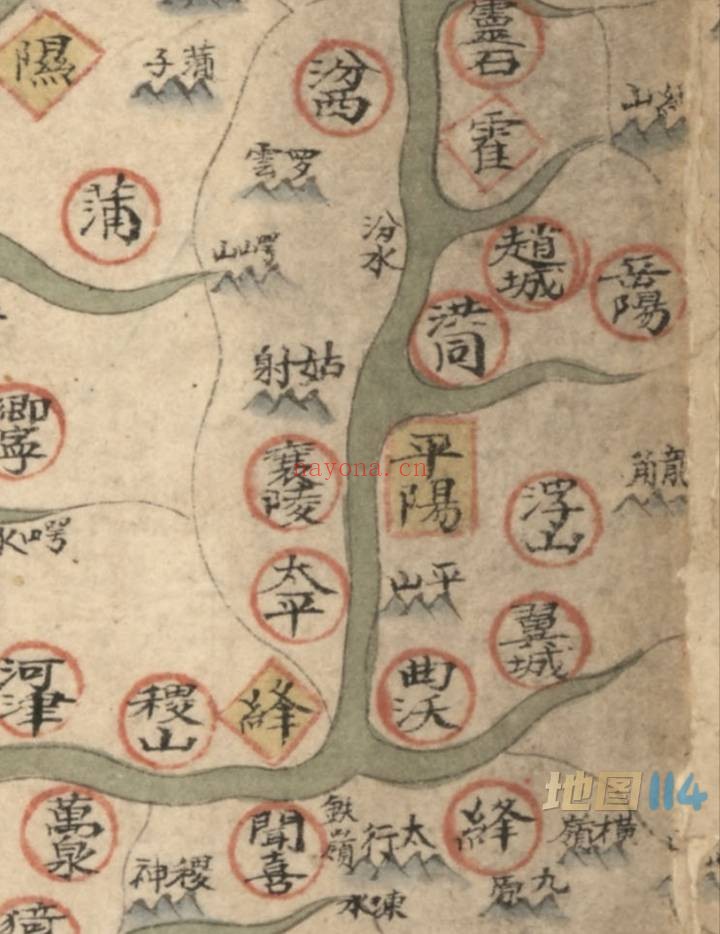 隰
蒲子
汾西
靈石
霍
山
蒲
罗雲
汾水
趙城
岳陽
山
洪同
姑射
鄉寧
襄陵
平陽
浮山
龍角
nayona.cn
太平
平山
翼城
河津
稷山
絳
曲沃
地图114
萬泉
聞喜
鉄嶺
太行
絳
橫嶺
稷神
九原
涑水
猗